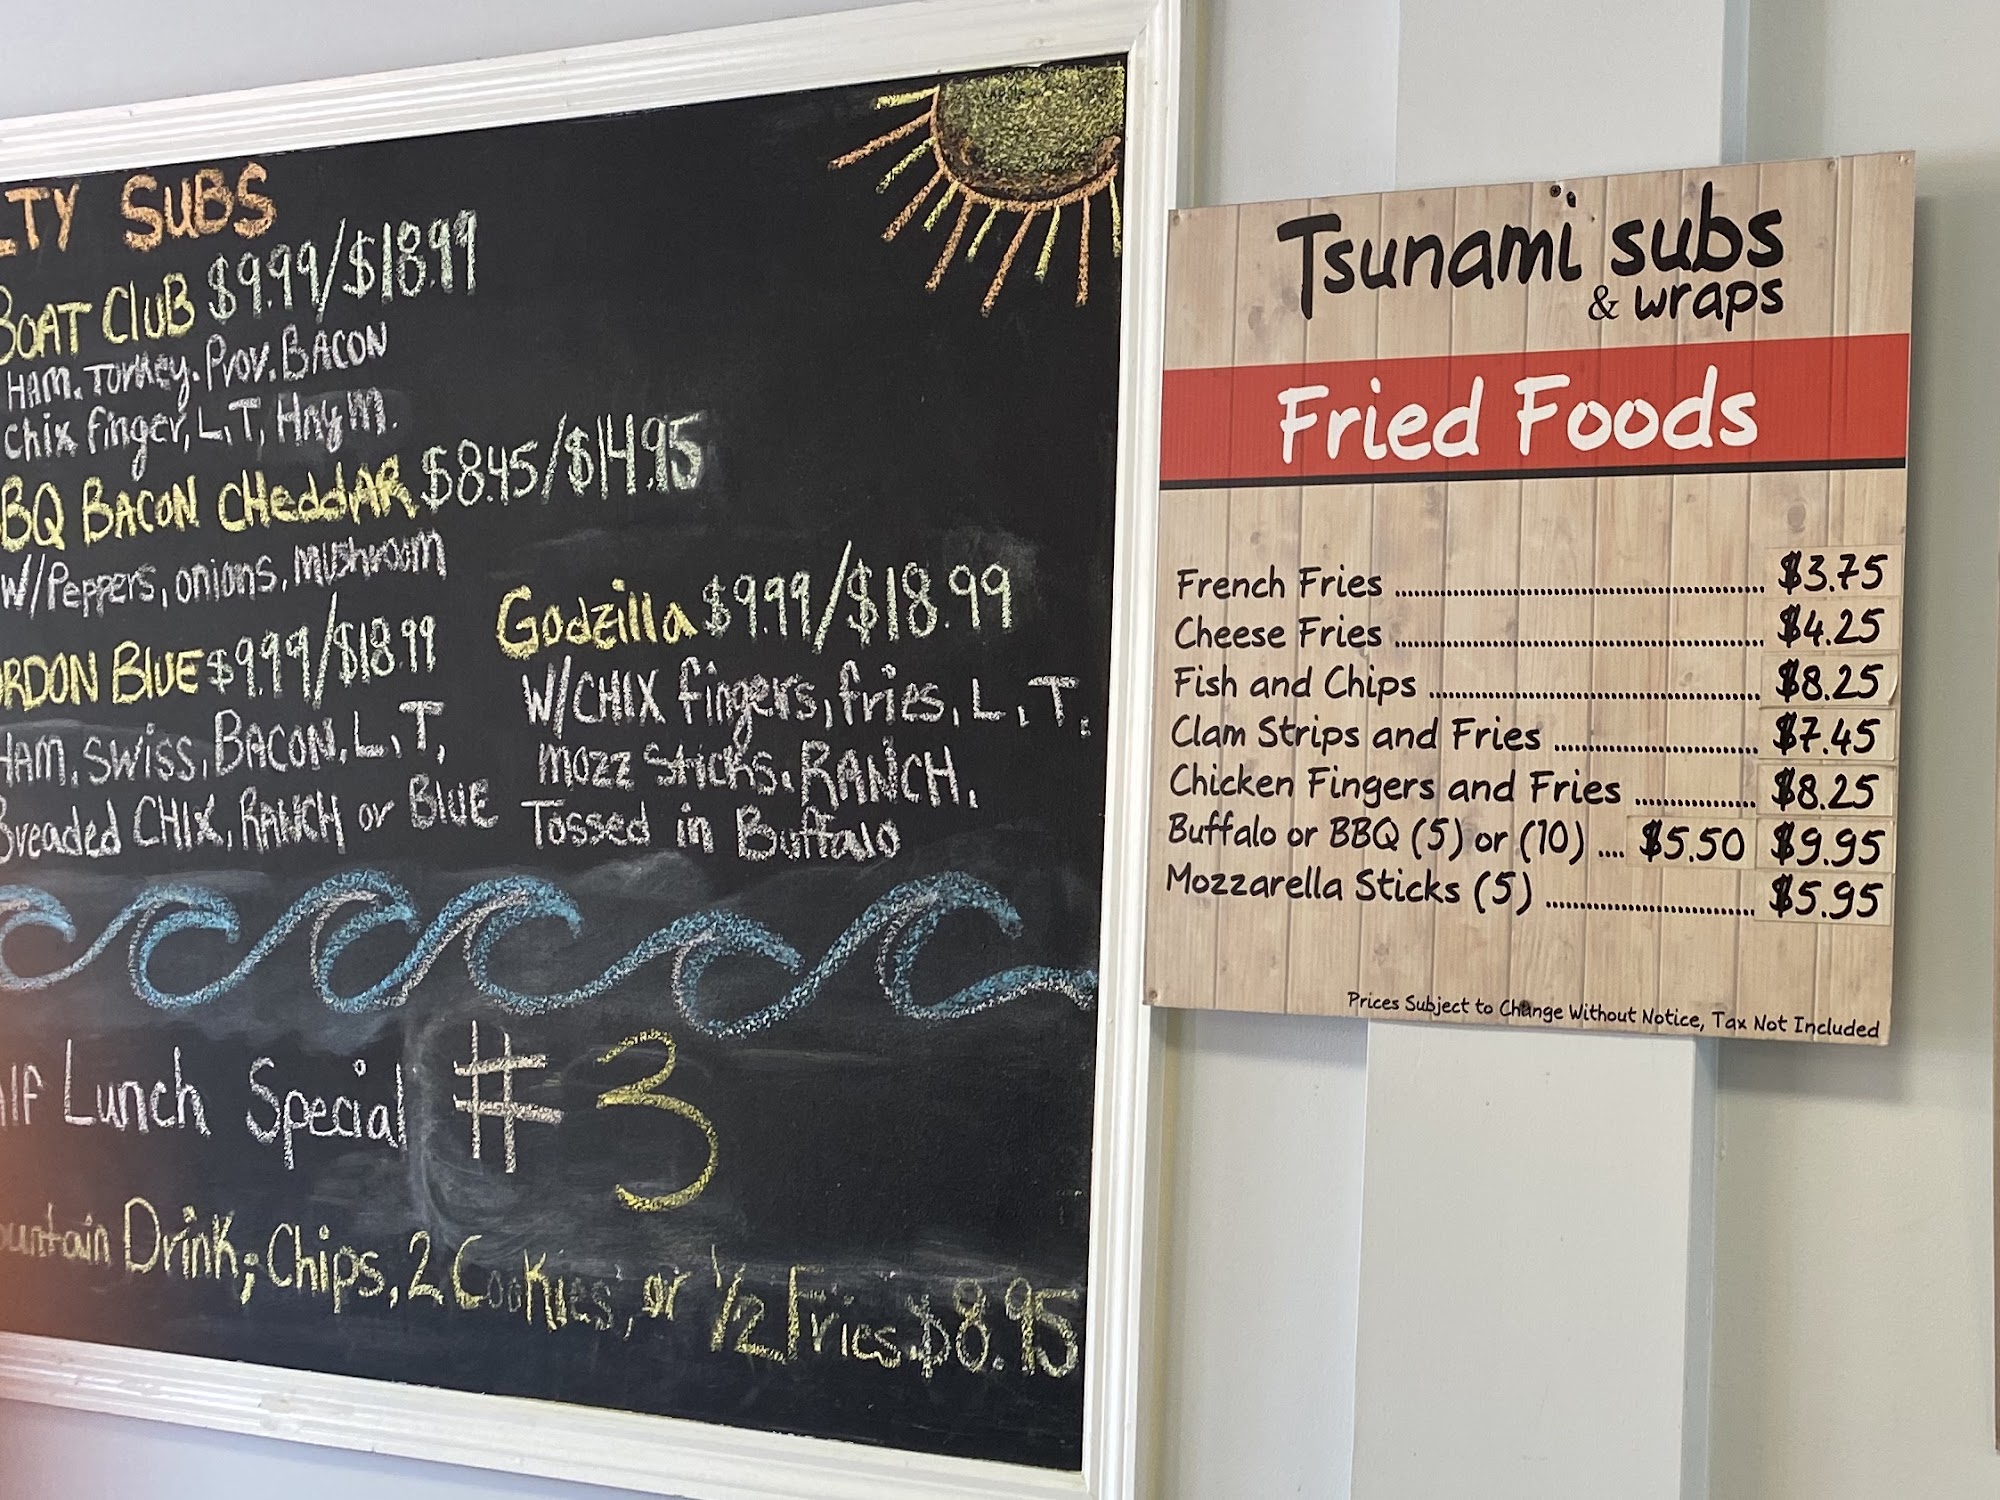 LTY SUBS
BOAT CLUB $9.99/$18.99
HAM. Turkey. Prov. BACON
Chix finger, L, T, Hny M.
BQ BACON CHeddAR $8.45/$14.95
W/Peppers, onions, mushroom
ORDON BLUE $9.99/$18.99
HAM, SWISS, BACON, L, T,
Breaded CHIX, RANCH or BLUE
Godzilla $9.99/$18.99
W/CHIX fingers, fries, L, T,
mozz sticks, RANCH,
Tossed in Buffalo
alf Lunch Special #3
ountain Drink, Chips, 2 Cookies, or 1/2 Fries $8.95
Tsunami subs
& wraps
Fried Foods
French Fries $3.75
Cheese Fries $4.25
Fish and Chips $8.25
Clam Strips and Fries $7.45
Chicken Fingers and Fries $8.25
Buffalo or BBQ (5) or (10) $5.50 $9.95
Mozzarella Sticks (5) $5.95
Prices Subject to Change Without Notice, Tax Not Included